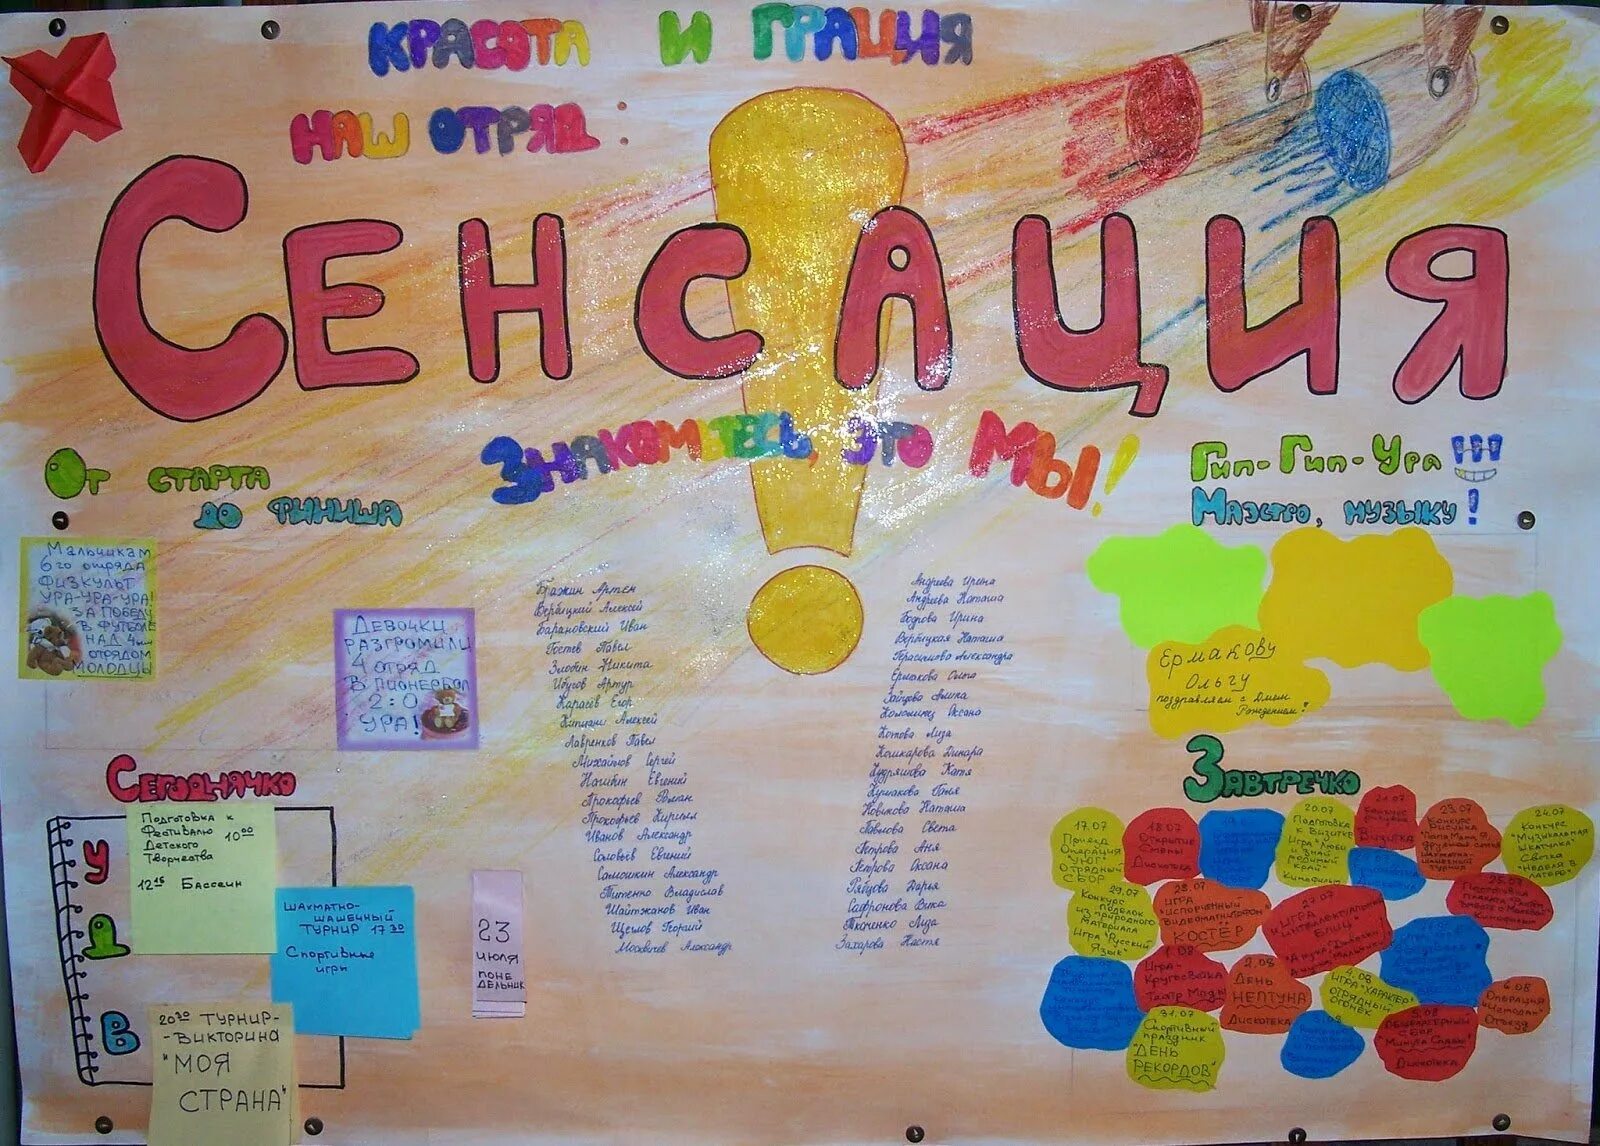 КРАСОТА И ГРАЦИЯ
НАШ ОТРЯД:
СЕНСАЦИЯ
ЗНАКОМЬТЕСЬ, ЭТО МЫ!
ОТ СТАРТА
ДО ФИНИША
Мальчикам
6го отряда
ФИЗКУЛЬТ
УРА-УРА-УРА!
ЗА ПОБЕДУ
В ФУТБОЛЕ
НАД 4ым
отрядом
МОЛОДЦЫ
ДЕВОЧКИ
РАЗГРОМИЛИ
4 ОТРЯД
В ПИОНЕРБОЛ
2:0
УРА!
Бражкин Артём
Вербицкий Алексей
Барановский Иван
Гостев Павел
Злобин Никита
Ибугов Артур
Карасёв Егор
Алексей
Лавренков Павел
Михайлов Сергей
Евгений
Прокофьев Роман
Прокофьев Кирилл
Иванов Александр
Соловьёв Евгений
Самошкин Александр
Титенко Владислав
Шайтжанов Иван
Щеглов Георгий
Москвичев Александр
Андреева Ирина
Андреева Наташа
Бодрова Ирина
Вербицкая Наташа
Герасимова Александра
Ермакова Ольга
Зайцева Алина
Коломиец Оксана
Котова Лиза
Кошкарова Динара
Кудряшова Катя
Новикова Наташа
Павлова Света
Петрова Аня
Петрова Оксана
Рябцова Дарья
Сафронова Вика
Ткаченко Лиза
Захарова Настя
ГИП-ГИП-УРА!!!
МАЭСТРО, МУЗЫКУ!
ЕРМАКОВУ
ОЛЬГУ
поздравляем с Днём
Рождения!
СЕГОДНЯЧКО
У
Д
В
Подготовка к
Фестивалю 10 00
Детского
Творчества
12 15 Бассейн
ШАХМАТНО-
ШАШЕЧНЫЙ
ТУРНИР 17 30
Спортивные
игры
20 30 ТУРНИР-
-ВИКТОРИНА
"МОЯ
СТРАНА"
23
ИЮЛЯ
ПОНЕ
ДЕЛЬНИК
ЗАВТРЕЧКО
17.07
Приезд
Операция
"УЮТ"
Отрядный
СБОР
18.07
Открытие
Смены
Дискотека
19.07
20.07
Подготовка
к Визитке
Игра "Люби
и знай
родной
край"
Кинофильм
21.07
Визитка
23.07
Конкурс
Рисунка
"Папа, Мама, Я,
дружная семья"
Шахматно-
шашечный
турнир
24.07
Конкурс
"Музыкальная
шкатулка"
Свечка
"Неделя в
лагере"
25.07
Подготовка
Кинофильм
27.07
ИГРА
"ИНТЕЛЛЕКТУАЛЬНЫЙ
БЛИЦ"
28.07
ИГРА
"ИСПОРЧЕННЫЙ
ВИДЕОМАГНИТОФОН"
КОСТЁР
29.07
Конкурс
поделок
из природного
материала
Игра "Русский
Язык"
31.07
Спортивный
праздник
"ДЕНЬ
РЕКОРДОВ"
1.08
Игра-
Кругосветка
Театр Моды
2.08
ДЕНЬ
НЕПТУНА
Дискотека
4.08
ИГРА "ХАРАКТЕР"
ОТРЯДНЫЙ
ОГОНЁК
5.08
Общелагерный
СБОР
"Минута Славы"
Дискотека
6.08
Операция
"Чемодан"
Отъезд